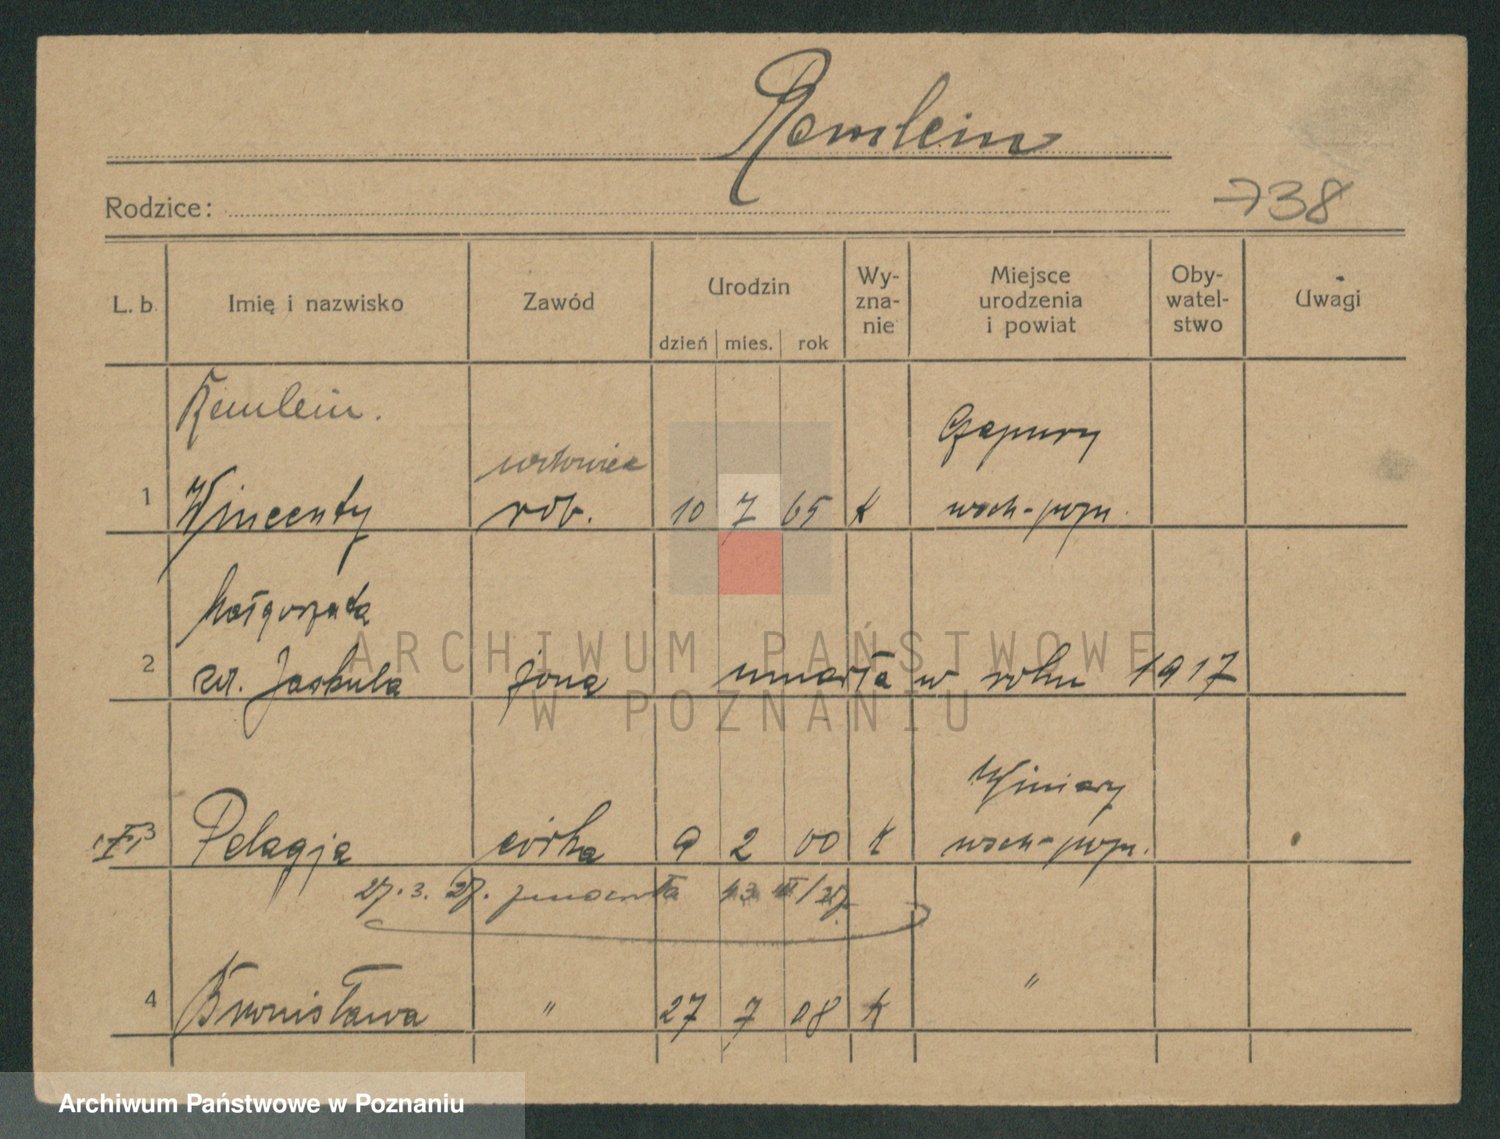 Remlein
Rodzice:
738
L. b. Imię i nazwisko Zawód Urodzin dzień mies. rok Wy-zna-nie Miejsce urodzenia i powiat Oby-watel-stwo Uwagi
Remlein.
Czapury
wdowiec
1 Wincenty rob. 10 7 65 K wsch-pozn.
Małgorzata
2 zd. Jaskuła żona umarła w roku 1917
ARCHIWUM PAŃSTWOWE
W POZNANIU
Winiary
3 Pelagja córka 9 2 00 K wsch-pozn.
27. 3. 27.
4 Bronisława " 27 7 08 K "
Archiwum Państwowe w Poznaniu